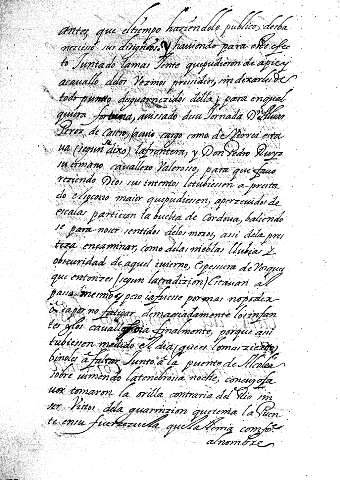 antes, que el tiempo haziendolo publico, desba
neciesse sus disignios. y haviendo para este efe
cto Juntado la mas Jente que pudieron de apie y a
cavallo, delos Vezinos presidios, sin dexarlos de
todo punto desguarnecidos della, y para en qual
quiera fortuna, avisado de su Jornada D. Alvaro
Perez de Castro, a cuio cargo como de Mayor esta
va (segun se dixo) la frontera, y Don Pedro Ruyz
su ermano cavallero Valeroso, para que favo
reciendo Dios sus intentos estubiesen a presta
do el socorro maior que pudiesen, apercevidos de
escalas parten la buelta de Cordova, valiendo
se para no ser sentidos delos moros, assi dela pres
teza en caminar, como delas nieblas lluvias y
obscuridad de aquel invierno, Espessura de bosques
que entonzes (segun la tradizion) Estavan a
pasa menos, y esto
por no fatigar demasiadamente los infan
tes y los cavallos finalmente, porque asi
tubiessen medido el dia, que en lo mas
binoles a faltar Junto a la puente de Alcolea
sobre viniendo la tenebrosa noche, con cuio fa
vor tomaron la orilla contraria del Rio sin
ser Vistos dela guarnizion que tenia la Puen
te en su fuerzezuela, que la tenia como
al nombre